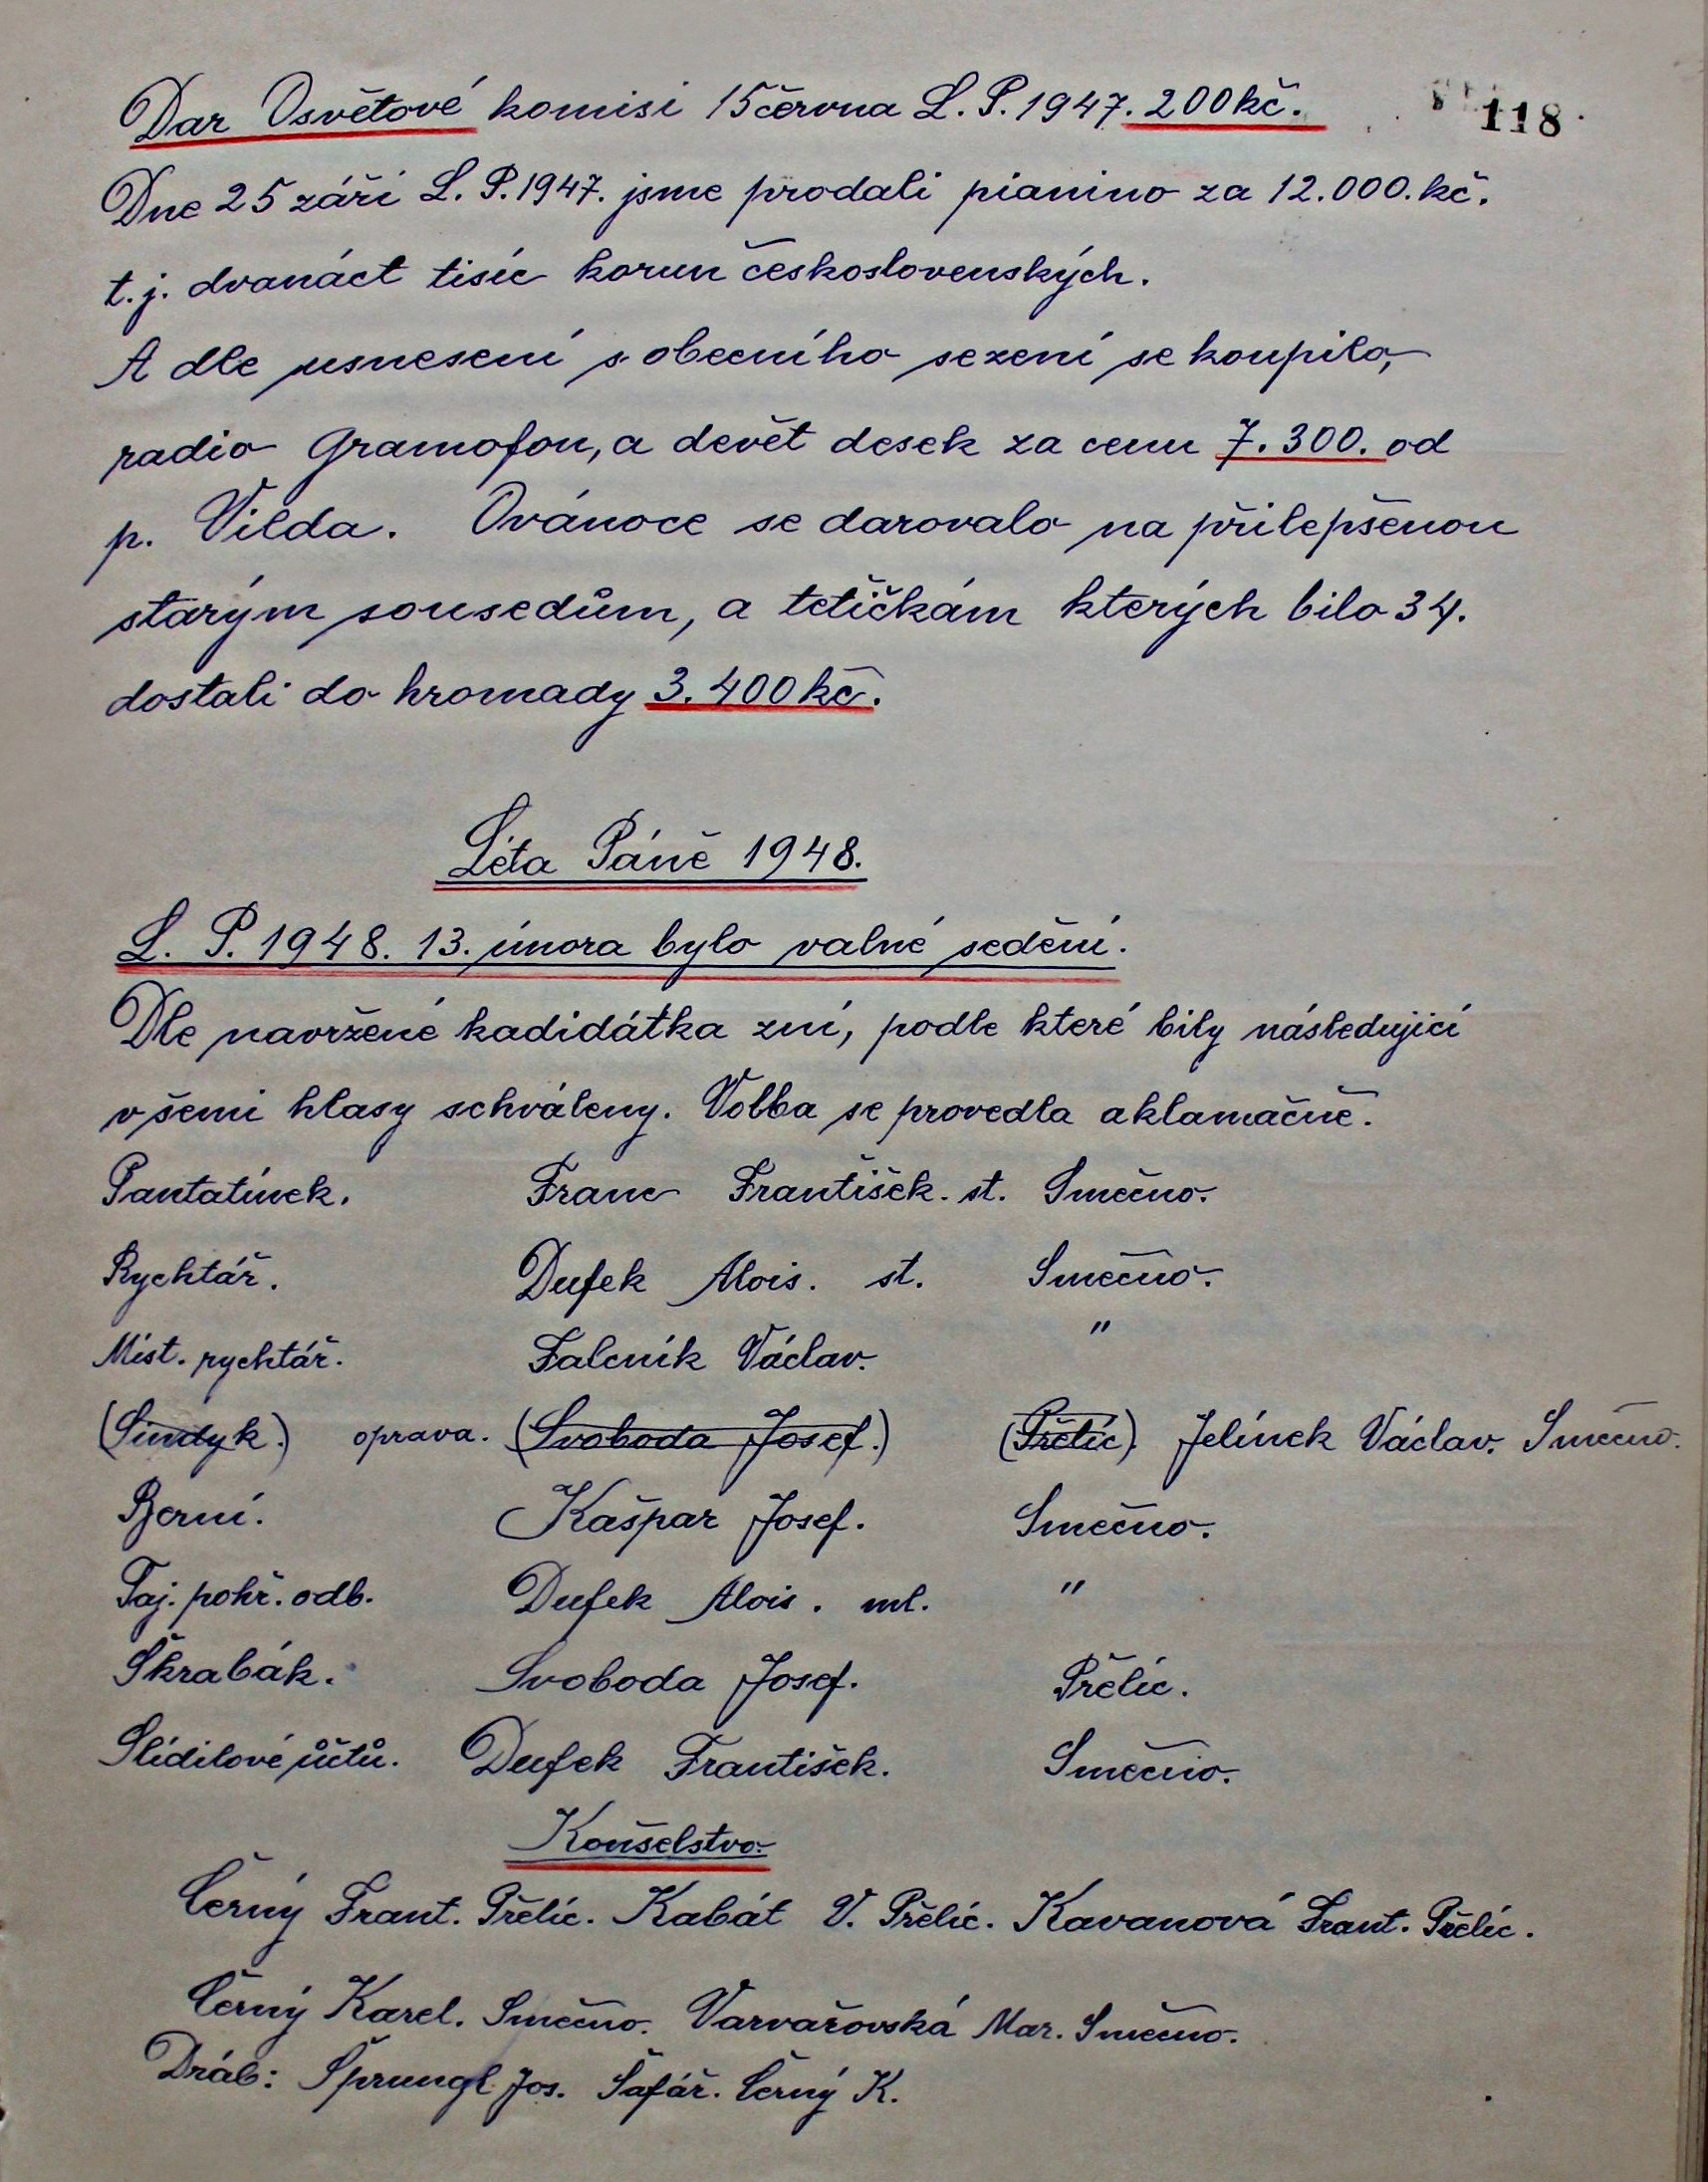 118
Dar Osvětové komisi 15 června L. P. 1947. 200 kč.
Dne 25 září L. P. 1947. jsme prodali pianino za 12.000. kč.
t. j. dvanáct tisíc korun československých.
A dle usnesení s obecního sezení se koupilo,
radio Gramofon, a devět desek za cenu 7.300. od
p. Vilda. Ovánoce se darovalo na přilepšenou
starým sousedům, a tetičkám kterých bilo 34.
dostali do hromady 3.400 kč.
Léta Páně 1948.
L. P. 1948. 13. února bylo valné sedění.
Dle navržené kadidátka zní, podle které bily následující
všemi hlasy schváleny. Volba se provedla aklamačně.
Pantatínek. Franc František. st. Smečno.
Rychtář. Dufek Alois. st. Smečno.
Míst. rychtář. Falcník Václav. "
(Sindyk.) oprava. (Svoboda Josef.) (Přelíc) Jelínek Václav. Smečno.
Berní. Kašpar Josef. Smečno.
Taj. pohř. odb. Dufek Alois. ml. "
Škrabák. Svoboda Josef. Přelíc.
Slídilové účtů. Dufek František. Smečno.
Konšelstvo.
Černý Frant. Přelíc. Kabát V. Přelíc. Kavanová Frant. Přelíc.
Černý Karel. Smečno. Varvařovská Mar. Smečno.
Dráb: Šprungl Jos. Šafář. Černý K.